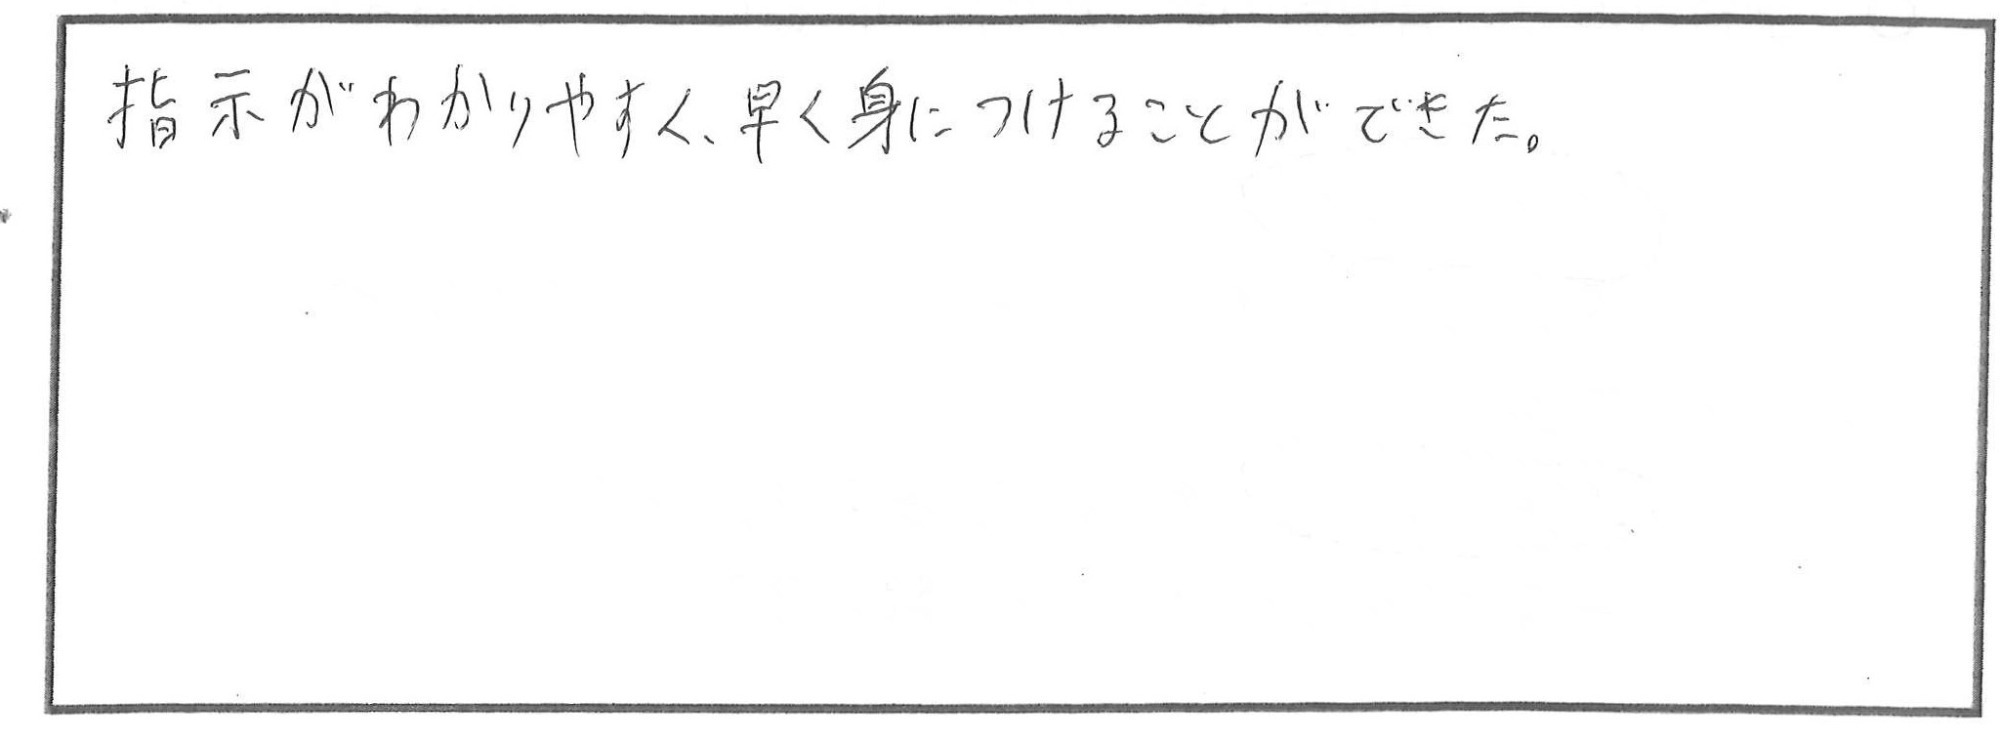 指示がわかりやすく、早く身につけることができた。